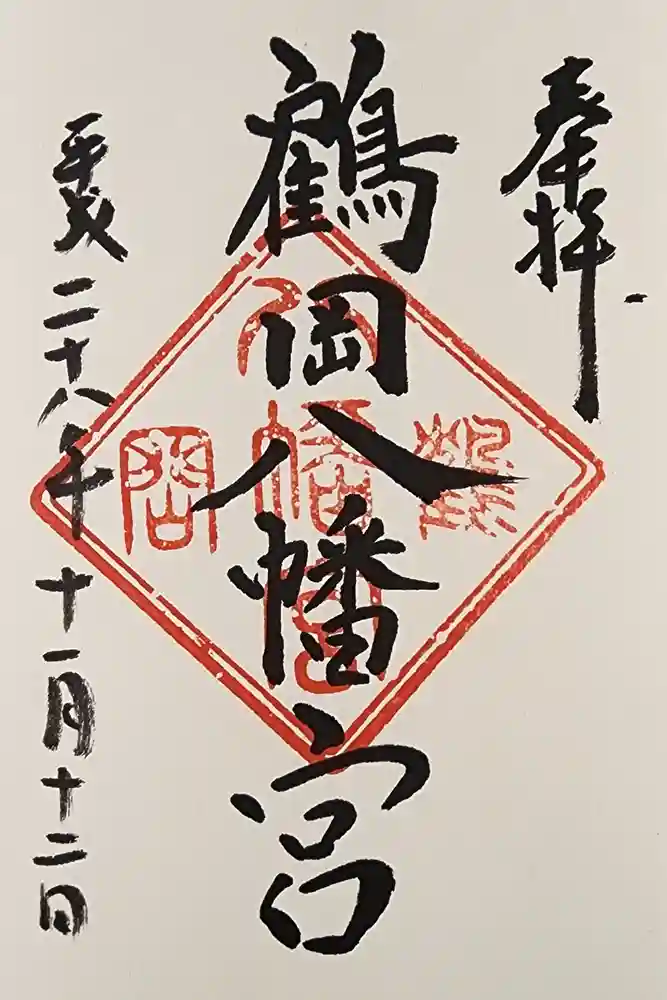 奉拝
鶴岡八幡宮
平成二十八年十一月十二日
鶴岡八幡宮